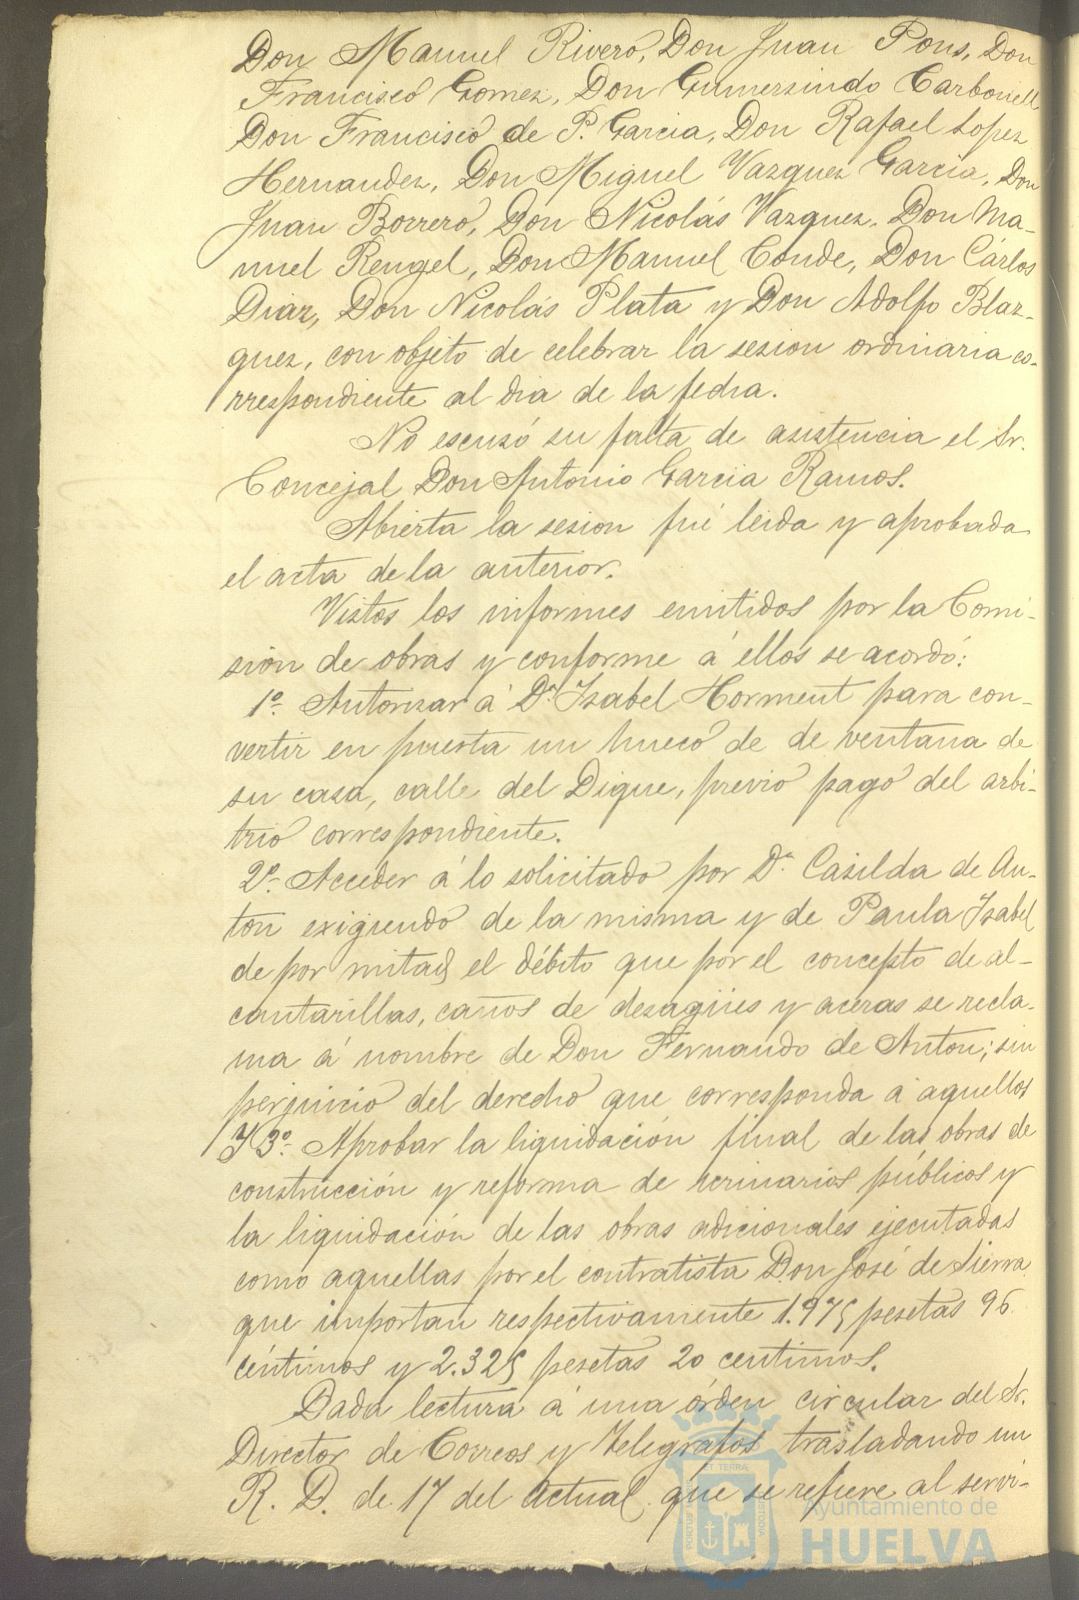 Don Manuel Rivero, Don Juan Pons, Don
Francisco Gomez, Don Gumersindo Carbonell
Don Francisco de P. Garcia, Don Rafael Lopez
Hernandez, Don Miguel Vazquez Garcia, Don
Juan Borrero, Don Nicolás Vazquez, Don Ma-
nuel Rengel, Don Manuel Conde, Don Cárlos
Diaz, Don Nicolás Plata y Don Adolfo Blaz-
quez, con objeto de celebrar la sesion ordinaria co-
rrespondiente al dia de la fecha.
No escusó su falta de asistencia el Sr.
Concejal Don Antonio Garcia Ramos.
Abierta la sesion fué leida y aprobada
el acta de la anterior.
Vistos los informes emitidos por la Comi-
sión de obras y conforme á ellos se acordó:
1º. Autorizar á Dª Isabel Horment para con-
vertir en puerta un hueco de de ventana de
su casa, calle del Dique, previo pago del arbi-
trio correspondiente.
2º. Acceder á lo solicitado por Dª Casilda de An-
ton exigiendo de la misma y de Paula Isabel
de por mitad el débito que por el concepto de al-
cantarillas, caños de desagües y aceras se recla-
ma á nombre de Don Fernando de Anton; sin
perjuicio del derecho que corresponda á aquellos
Y 3º. Aprobar la liquidación final de las obras de
construcción y reforma de urinarios públicos y
la liquidación de las obras adicionales ejecutadas
como aquellas por el contratista Don José de Sierra
que importan respectivamente 1.975 pesetas 96
céntimos y 2.325 pesetas 20 centimos.
Dada lectura á una órden circular del Sr.
Director de Correos y Telegrafos trasladando un
R. D. de 17 del actual que se refiere al servi-
Ayuntamiento de
HUELVA